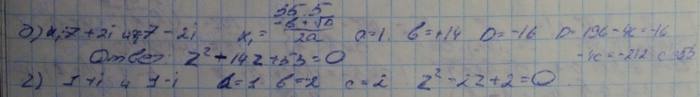 55.5
б) x₁ 7+2i и 7-2i x₁ = (-b+√D)/2a a=1 b=+14 D=-16 D=196-4c=-16
Ответ: z²-14z+53=0 -4c=-212 c=53
2) 1+i и 1-i a=1 b=-2 c=2 z²-2z+2=0